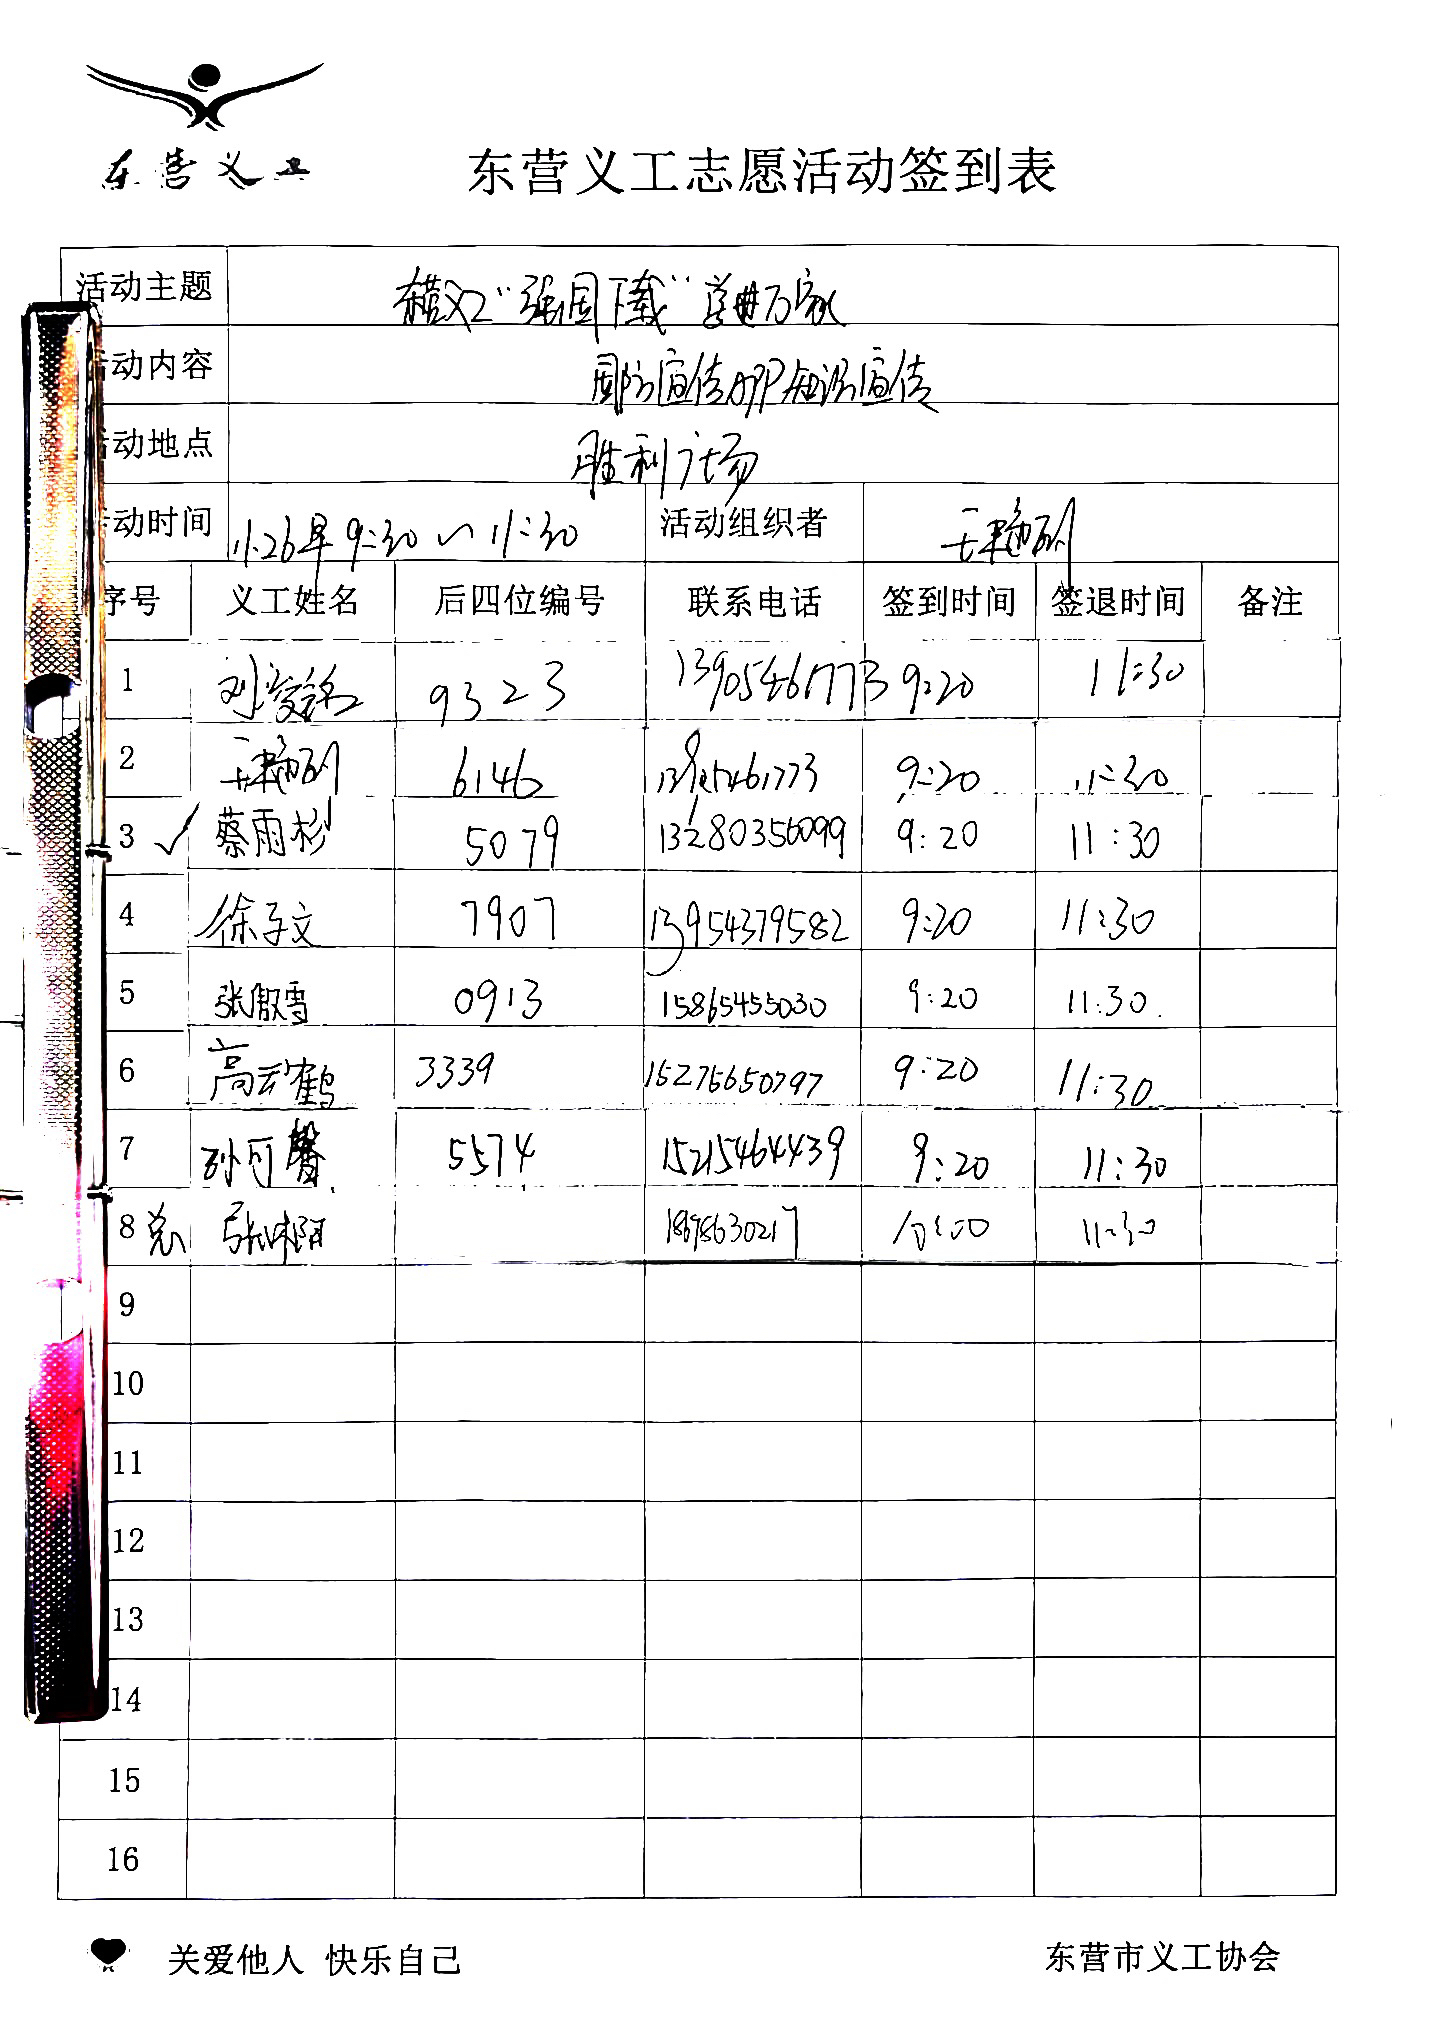 东营义工
东营义工志愿活动签到表
活动主题 东营义工“强国下载”首进万家
活动内容 国防宣传 APP知识宣传
活动地点 胜利广场
活动时间 11.26早9:30~11:30 活动组织者 王艳丽
序号 义工姓名 后四位编号 联系电话 签到时间 签退时间 备注
1 刘 9323 13905461773 9:20 11:30
2 王艳丽 6146 13905461773 9:20 11:30
3 ✓ 蔡雨杉 5079 13280356099 9:20 11:30
4 徐子文 7907 13954379582 9:20 11:30
5 张傲雪 0913 15865455030 9:20 11:30
6 高云鹤 3339 15275650797 9:20 11:30
7 孙可馨 5574 15215464439 9:20 11:30
8 张 18678630217 10:00 11:30
9
10
11
12
13
14
15
16
关爱他人 快乐自己 东营市义工协会